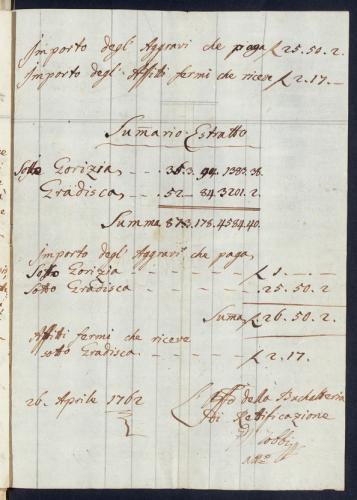 Importo degl' Aggravi che paga £ 25.50.2.
Importo degl' Affitti fermi che riceve £ 2.17.
Sumario Estratto
Sotto Gorizia 3.94.1383.38.
Gradisca 52 84.3201.2.
Summa 178.4584.40.
Importo degl' Aggravi che paga
Sotto Gorizia £ 1
Sotto Gradisca 25.50.2
Suma £ 26.50.2.
Affitti fermi che riceve
sotto Gradisca £ 2.17.
26. Aprile 1762
Off.o della Buchalteria
di Rettificazione